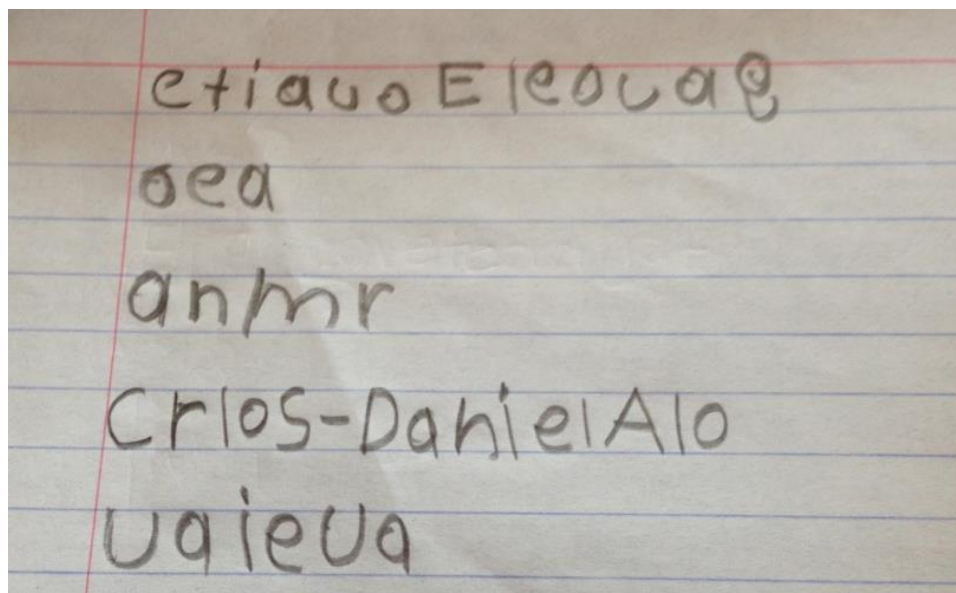 etiauo Eleouae
oea
anmr
Crlos-DanielAlo
uaieua